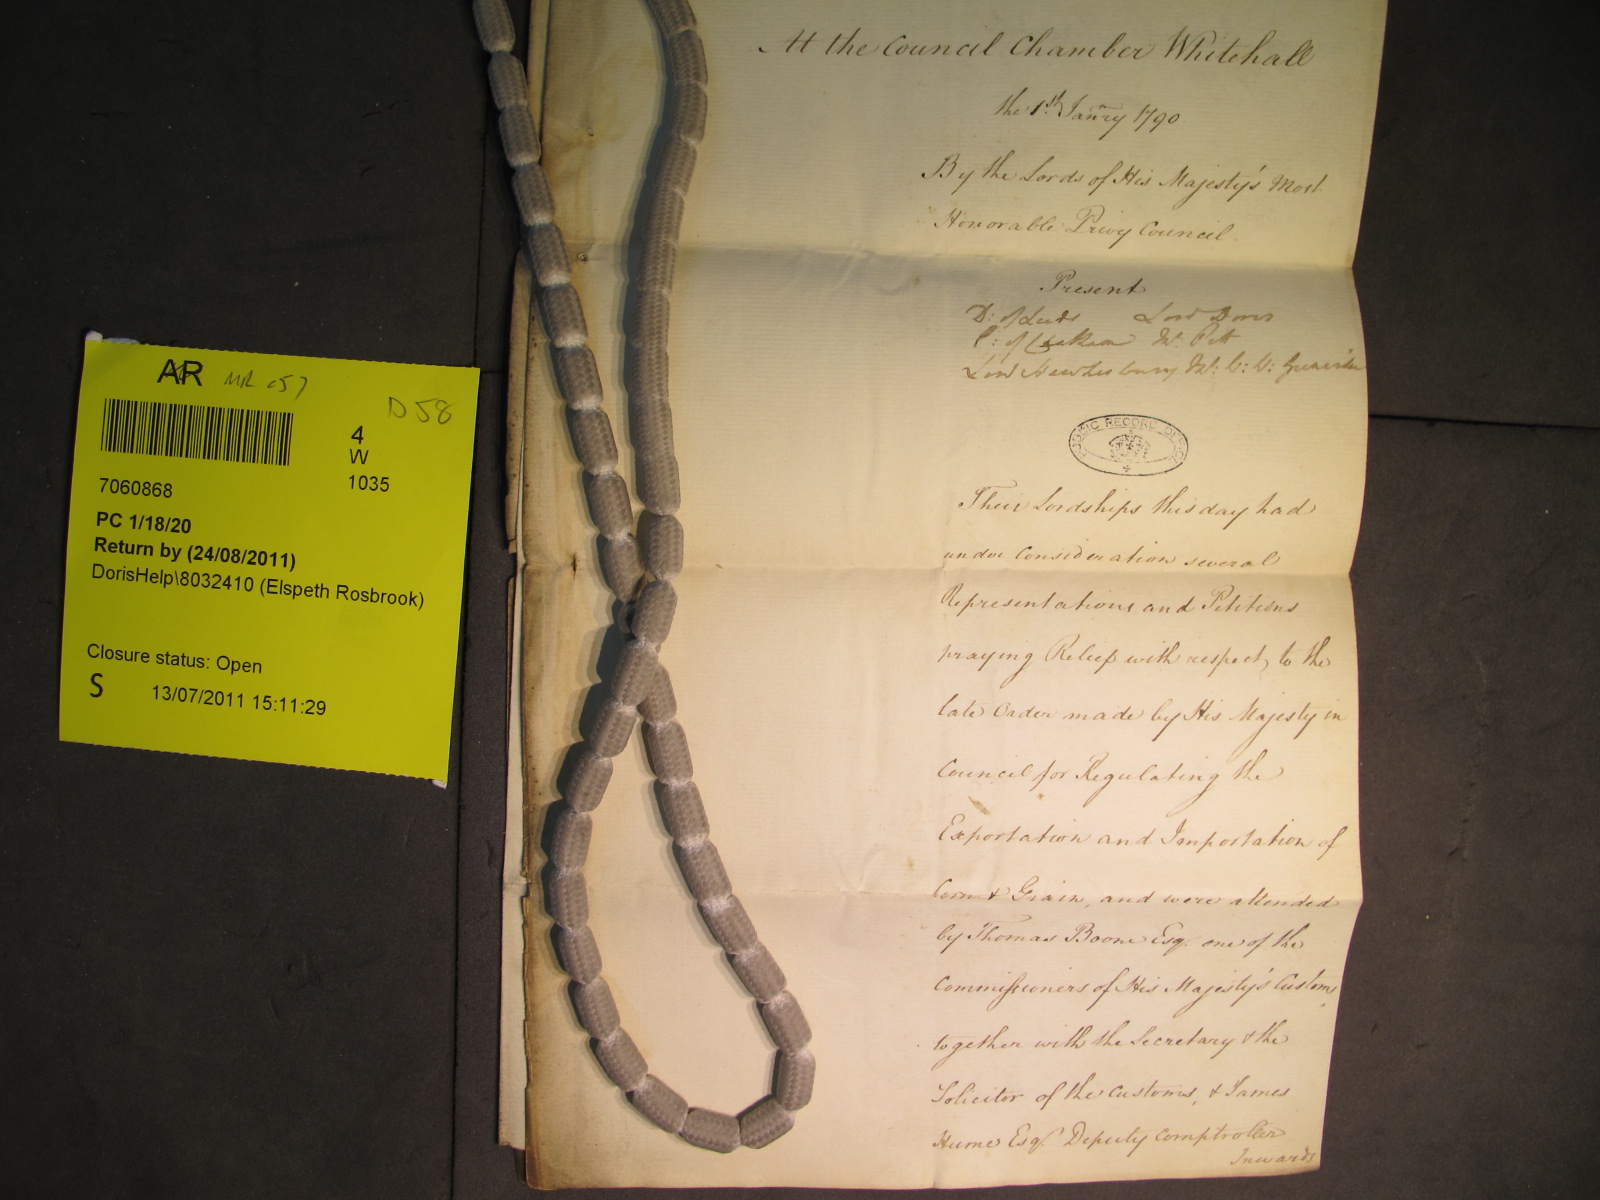 AR MR 057
D 58
4
W
1035
7060868
PC 1/18/20
Return by (24/08/2011)
DorisHelp\8032410 (Elspeth Rosbrook)
Closure status: Open
S 13/07/2011 15:11:29
At the Council Chamber Whitehall
the 1st Janry 1790
By the Lords of His Majesty's Most
Honorable Privy Council.
Present
D: of Leeds Lord Dover
E: of Chatham Mr. Pitt
Lord Hawkesbury Mr. W: W: Grenville
PUBLIC RECORD OFFICE
Their Lordships this day had
under Consideration several
Representations and Petitions
praying Relief with respect to the
late Order made by His Majesty in
Council for Regulating the
Exportation and Importation of
Corn & Grain, and were attended
by Thomas Boone Esqr. one of the
Commissioners of His Majesty's Customs,
together with the Secretary & the
Solicitor of the Customs, & James
Hume Esqr. Deputy Comptroller
Inwards